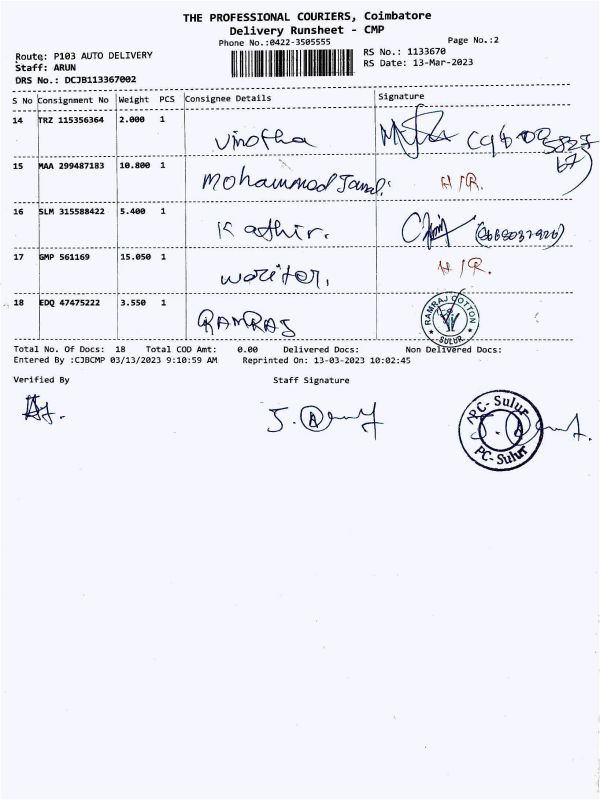 THE PROFESSIONAL COURIERS, Coimbatore
Delivery Runsheet - CMP
Phone No.:0422-3505555
Page No.:2
Route: P103 AUTO DELIVERY
RS No.: 1133670
Staff: ARUN
RS Date: 13-Mar-2023
DRS No.: DCJB113367002
S No Consignment No Weight PCS Consignee Details Signature
14 TRZ 115356364 2.000 1 Vinotha
15 MAA 299487183 10.800 1 Mohammod Jamal: H/R.
16 SLM 315588422 5.400 1 Kathir.
17 GMP 561169 15.050 1 H/R.
18 EDQ 47475222 3.550 1 RAMRAJ RAMRAJ COTTON SULUR
Total No. Of Docs: 18 Total COD Amt: 0.00 Delivered Docs: Non Delivered Docs:
Entered By :CJBCMP 03/13/2023 9:10:59 AM Reprinted On: 13-03-2023 10:02:45
Verified By Staff Signature
PC- Sulur
PC- Sulur